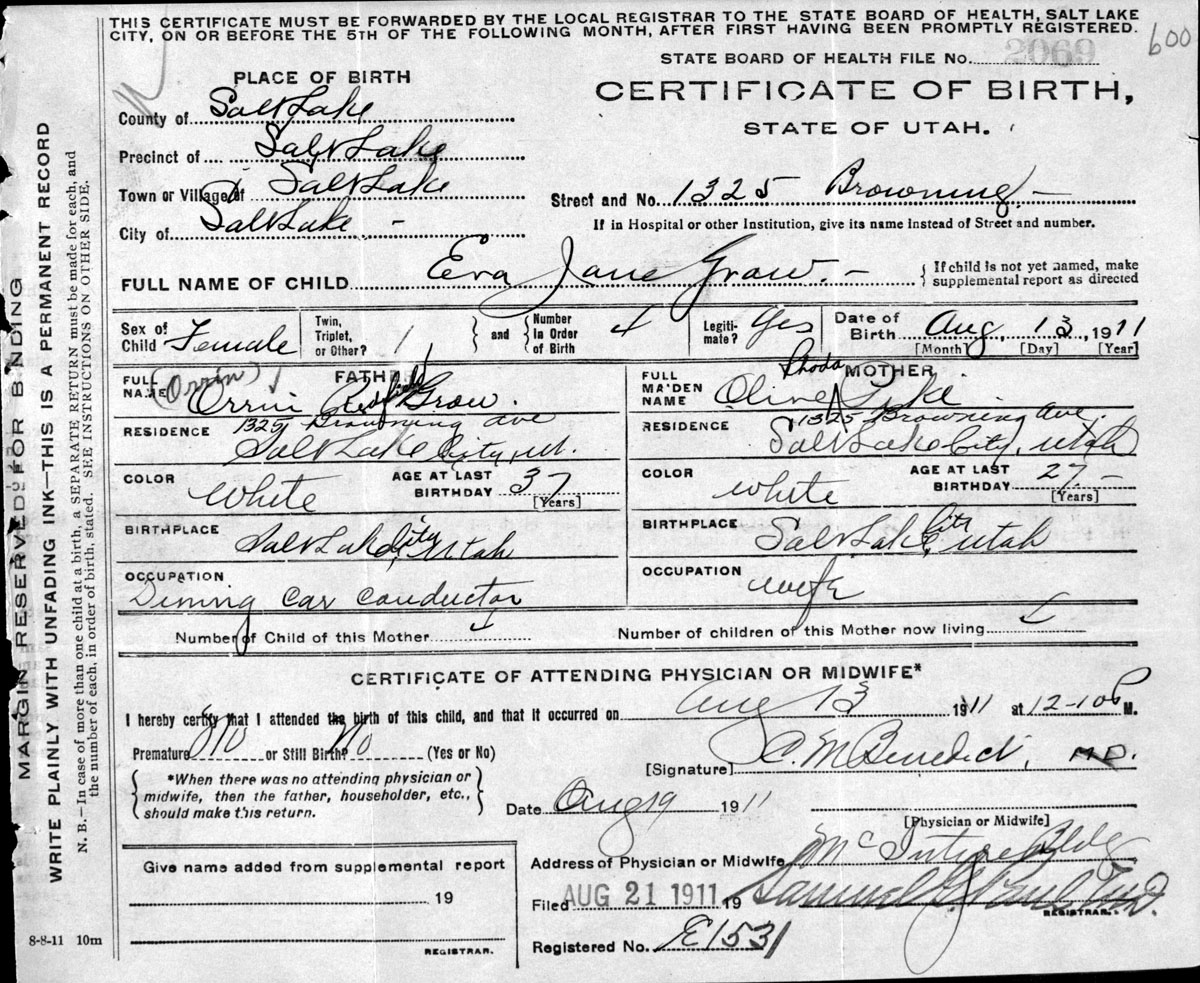 THIS CERTIFICATE MUST BE FORWARDED BY THE LOCAL REGISTRAR TO THE STATE BOARD OF HEALTH, SALT LAKE
CITY, ON OR BEFORE THE 5TH OF THE FOLLOWING MONTH, AFTER FIRST HAVING BEEN PROMPTLY REGISTERED.
600
STATE BOARD OF HEALTH FILE No. 2069
PLACE OF BIRTH
CERTIFICATE OF BIRTH,
STATE OF UTAH.
County of Salt Lake
Precinct of Salt Lake
Town or Village of Salt Lake
Street and No. 1325 Browning
City of Salt Lake
If in Hospital or other Institution, give its name instead of Street and number.
FULL NAME OF CHILD Eva Jane Grow.
If child is not yet named, make
supplemental report as directed
Sex of Child Female
Twin, Triplet, or Other? 1
and
Number in Order of Birth
Legitimate? Yes
Date of Birth Aug. 13, 1911
[Month] [Day] [Year]
FATHER
FULL NAME (Orrin) Orrin Grow.
RESIDENCE 1325 Browning Ave
Salt Lake City, Ut.
COLOR White
AGE AT LAST BIRTHDAY 37
[Years]
BIRTHPLACE Salt Lake City, Utah
OCCUPATION
Dining car conductor
MOTHER
FULL MAIDEN NAME Olive Rhoda Pike
RESIDENCE 1325 Browning Ave.
Salt Lake City, Utah
COLOR White
AGE AT LAST BIRTHDAY 27
[Years]
BIRTHPLACE Salt Lake City, Utah
OCCUPATION wife
Number of Child of this Mother
Number of children of this Mother now living
CERTIFICATE OF ATTENDING PHYSICIAN OR MIDWIFE*
I hereby certify that I attended the birth of this child, and that it occurred on Aug 13 1911 at 12-10 P M.
Premature No or Still Birth? No (Yes or No)
*When there was no attending physician or
midwife, then the father, householder, etc.,
should make this return.
[Signature] C. M Benedict, M.D.
Date Aug 19 1911
[Physician or Midwife]
Give name added from supplemental report
19
REGISTRAR.
Address of Physician or Midwife McIntyre Bldg
Filed AUG 21 1911 19 Samuel G. Paul
REGISTRAR.
Registered No. E1531
8-8-11 10m
MARGIN RESERVED FOR BINDING
WRITE PLAINLY WITH UNFADING INK—THIS IS A PERMANENT RECORD
N. B.—In case of more than one child at a birth, a SEPARATE RETURN must be made for each, and
the number of each, in order of birth, stated. SEE INSTRUCTIONS ON OTHER SIDE.